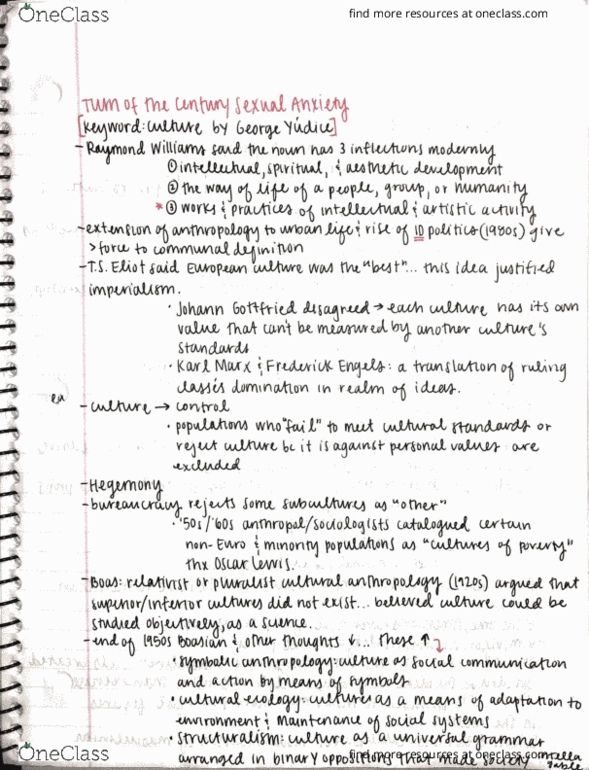 OneClass
find more resources at oneclass.com
Turn of the Century Sexual Anxiety
[Keyword: Culture by George Yúdice]
- Raymond Williams said the noun has 3 inflections modernly
① intellectual, spiritual, & aesthetic development
② the way of life of a people, group, or humanity
* ③ works & practices of intellectual & artistic activity
- extension of anthropology to urban life & rise of ID politics (1980s) give
> force to communal definition
- T.S. Eliot said European culture was the "best"... this idea justified
imperialism.
• Johann Gottfried disagreed → each culture has its own
value that can't be measured by another culture's
standards
• Karl Marx & Frederick Engels: a translation of ruling
classes domination in realm of ideas.
- culture → control
• populations who "fail" to meet cultural standards or
reject culture bc it is against personal values are
excluded
- Hegemony
- bureaucracy rejects some subcultures as "other"
• '50s/'60s anthropol/sociologists catalogued certain
non-Euro & minority populations as "cultures of poverty"
thx Oscar Lewis.
- Boas: relativist or pluralist cultural anthropology (1920s) argued that
superior/inferior cultures did not exist... believed culture could be
studied objectively, as a science.
- end of 1950s Boasian & other thoughts ↓... these ↑
• symbolic anthropology: culture as social communication
and action by means of symbols
• cultural ecology: culture as a means of adaptation to
environment & maintenance of social systems
• structuralism: culture as a universal grammar
arranged in binary oppositions that made society
OneClass
find more resources at oneclass.com